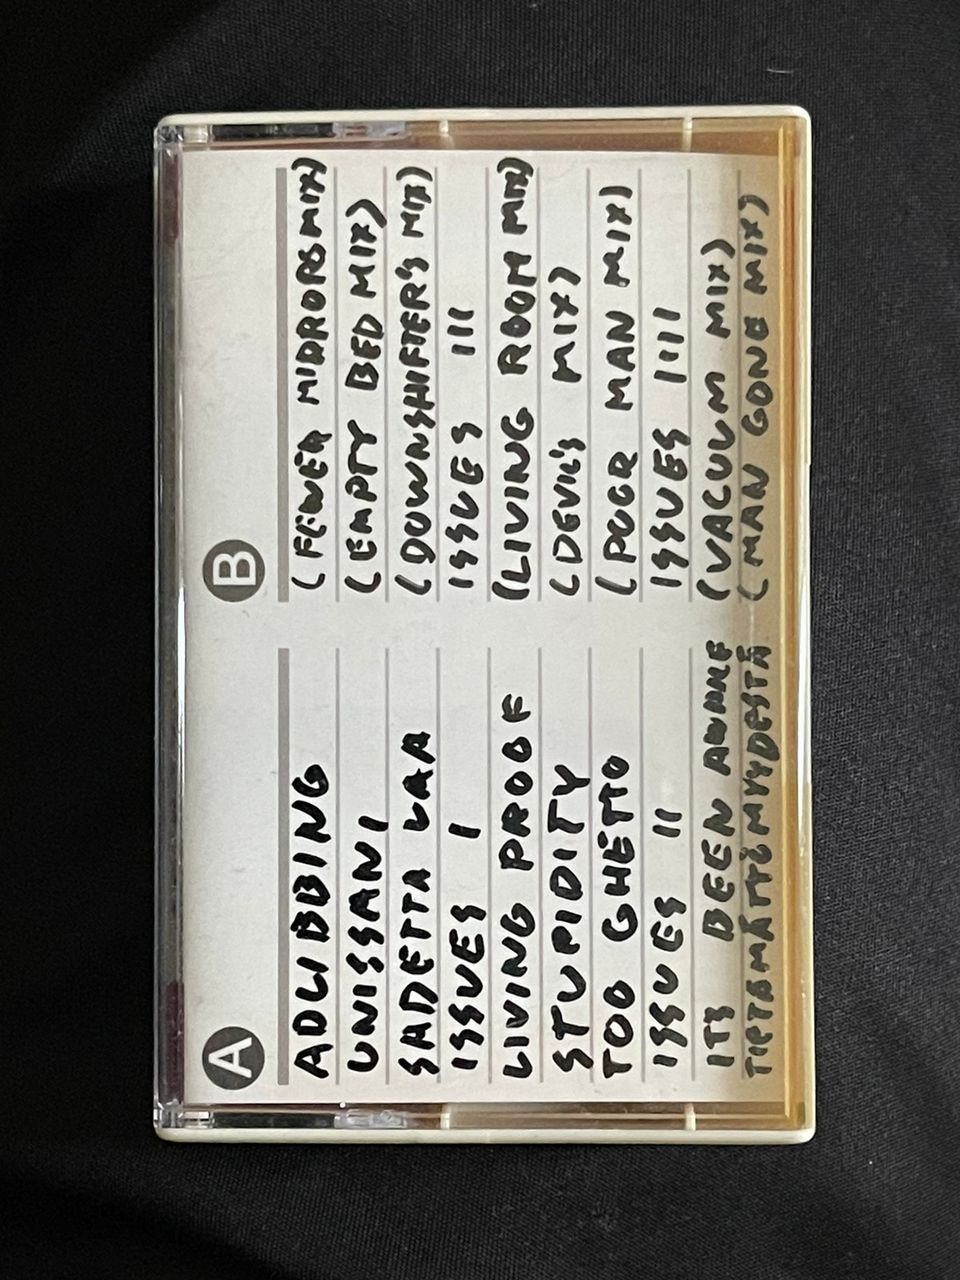 A
ADLIBBING
UNISSANI
SADETTA VAA
ISSUES I
LIVING PROOF
STUPIDITY
TOO GHETTO
ISSUES II
ITS BEEN AWHILE
TIETÄMÄTTÖMYYDESTÄ
B
(FEWER MIRRORS MIX)
(EMPTY BED MIX)
(DOWNSHIFTER'S MIX)
ISSUES III
(LIVING ROOM MIX)
(DEVIL'S MIX)
(POOR MAN MIX)
ISSUES IIII
(VACUUM MIX)
(MAN GONE MIX)